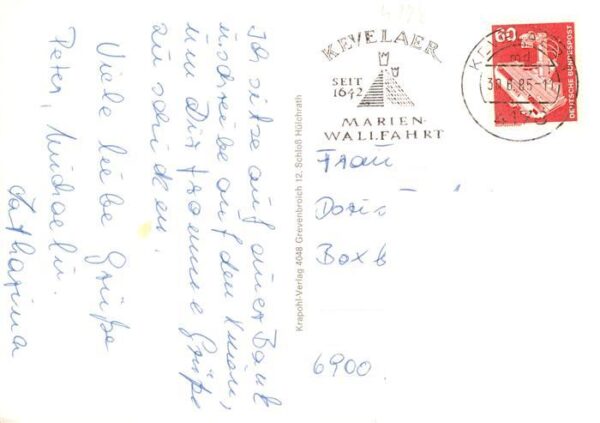 Ich sitze auf einer Bank
u. schreibe auf den Knien,
um Dir fromme Grüße
zu schicken.
Viele liebe Grüße
Peter, Michael u.
Katharina
Krapohl-Verlag 4048 Grevenbroich 12, Schloß Hülchrath
KEVELAER
SEIT
1642
MARIEN-
WALLFAHRT
30.6.85-11
60
DEUTSCHE BUNDESPOST
Frau
Doris
Boxb
6900